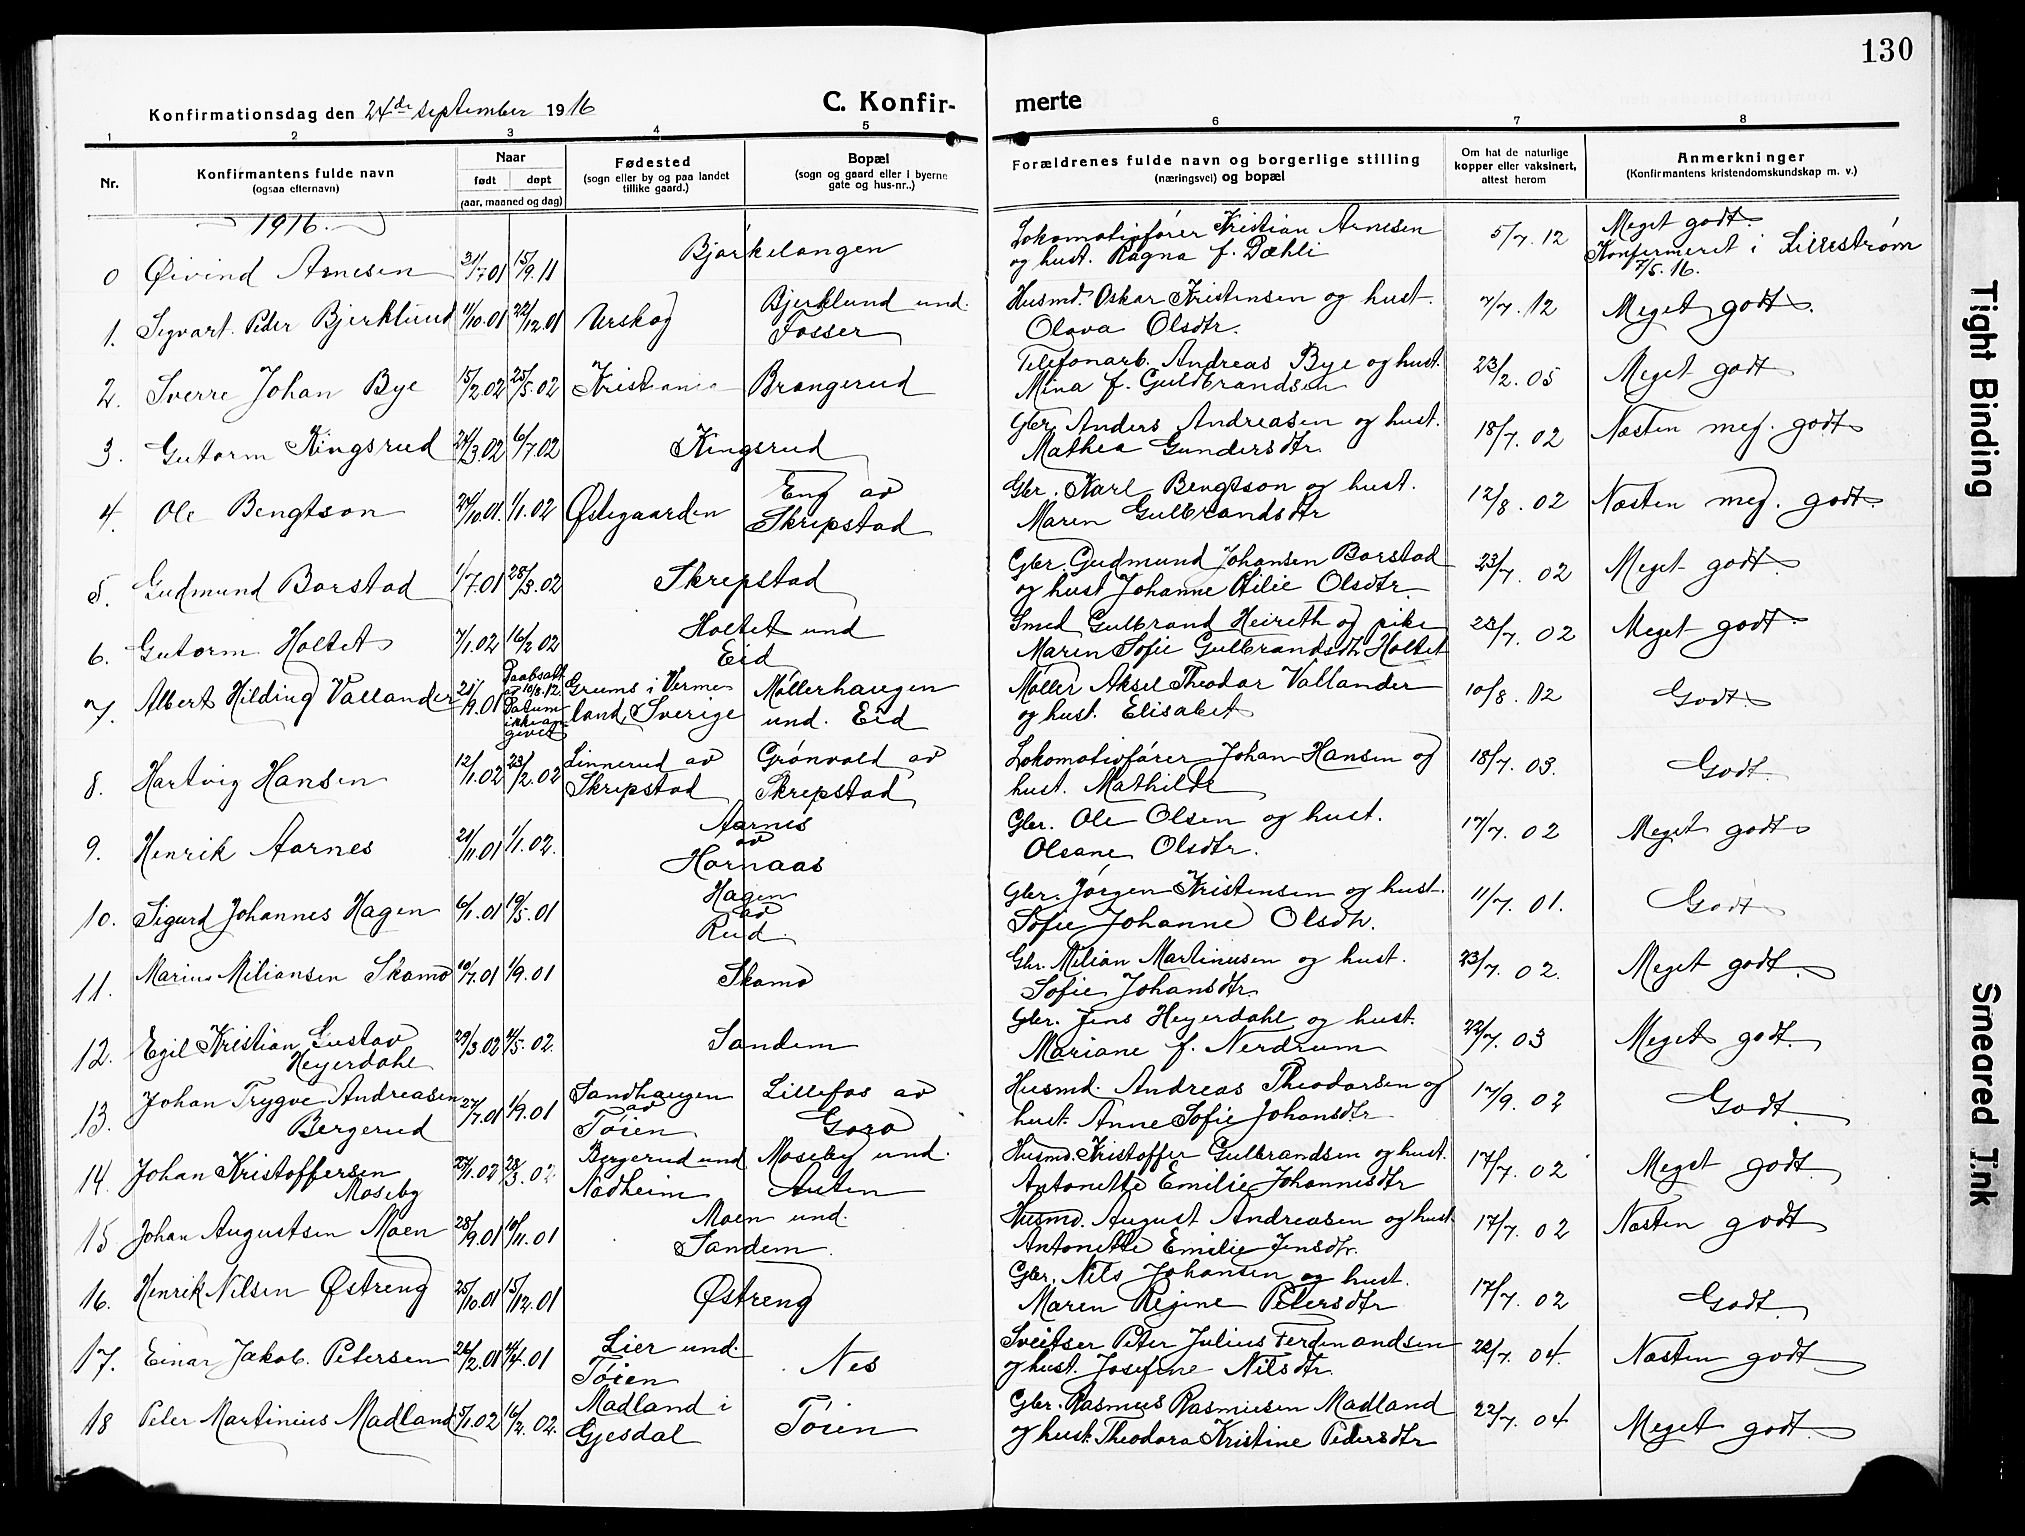 130
Konfirmationsdag den 24de september 1916
C. Konfir-
merte
1 2 3 4 5 6 7 8
Nr.
Konfirmantens fulde navn
(ogsaa efternavn)
Naar
født døpt
(aar, maaned og dag)
Fødested
(sogn eller by og paa landet
tillike gaard.)
Bopæl
(sogn og gaard eller i byerne
gate og hus-nr..)
Forældrenes fulde navn og borgerlige stilling
(næringsvei) og bopæl
Om hat de naturlige
kopper eller vaksinert,
attest herom
Anmerkninger
(Konfirmantens kristendomskundskap m. v.)
1916.
0 Øivind Arnesen 31/7 01 15/9 11 Bjørkelangen Lokomotivfører Kristian Arnesen
og hust. Ragna f. Dæhli 5/7. 12 Meget godt.
Konfermeret i Lillestrøm
7/5. 16.
1. Sigvart Peder Bjerklund 1/10.01 22/12.01 Urskog Bjerklund und.
Fosser Husmd. Oskar Kristensen og hust.
Olava Olsdtr. 7/7. 12 Meget godt.
2. Sverre Johan Bye 15/2.02 25/5.02 Kristiania Brangerud Telefonarb. Andreas Bye og hust.
Mina f. Guldbrandsen 23/2. 05 Meget godt
3. Gutorm Kingsrud 24/3.02 6/7.02 Kingsrud Gbr. Anders Andreasen og hust.
Mathea Gundersdtr. 18/7. 02 Næsten meg. godt
4. Ole Bengtson 20/10.01. 1/1.02 Østegaarden Eng av
Skrepstad Gbr. Karl Bengtson og hust.
Maren Gulbrandsdtr 12/8. 02 Næsten meg. godt.
5. Gudmund Borstad 1/7.01 28/3.02 Skrepstad Gbr. Gudmund Johansen Borstad
og hust Johanne Otilie Olsdtr. 23/7. 02 Meget godt.
6. Gutorm Holtet 7/1.02 16/2 02 Holtet und
Eid Smed Gulbrand Heireth og pike
Maren Sofie Gulbrandsdtr Holtet 23/7. 02 Meget godt.
7. Albert Hilding Vallander 21/9.01 Daabsatt.
av 10/8.12.
Datum
ikke an-
givet Grums i Verme
land, Sverige Møllerhaugen
und. Eid Møller Aksel Theodor Vallander
og hust. Elisabet 10/8. 12 Godt.
8. Hartvig Hansen 12/1.02 23/2.02 Linnerud av
Skrepstad Grønvold av
Skrepstad Lokomotivfører Johan Hansen og
hust. Mathilde 18/7. 03. Godt.
9. Henrik Aarnes 21/11.01 1/1.02. Aarnes
av
Hornaas Gbr. Ole Olsen og hust.
Olsane Olsdtr. 17/7. 02 Meget godt
10. Sigurd Johannes Hagen 6/1.01 19/5.01 Hagen
av
Rud. Gbr. Jørgen Kristensen og hust.
Sofie Johanne Olsdtr. 11/7. 01. Godt
11. Marius Miliansen Skamo 10/7.01 1/9.01 Skamo Gbr. Milian Martinusen og hust.
Sofie Johansdtr. 23/7. 02. Meget godt.
12. Egil Kristian Gustav
Heyerdahl 29/3.02 4/5.02. Sandem Gbr. Jens Heyerdahl og hust.
Mariane f. Nerdrum 22/7. 03 Meget godt.
13. Johan Trygve Andreasen
Bergerud 27/7.01 1/9.01 Sandhaugen
av
Tøien Lillefos av
Goro Husmd. Andreas Theodorsen og
hust. Anne Sofie Johansdtr 17/9. 02 Godt.
14. Johan Kristoffersen
Moseby 27/1.02 23/3.02 Bergerud und
Nadheim Moseby und.
Auten Husmd. Kristoffer Gulbrandsen og hust.
Antonette Emilie Johannesdtr 17/7. 02 Meget godt
15 Johan Augustsen Moen 28/9.01 10/11.01 Moen und.
Sandem. Husmd. August Andreasen og hust
Antonette Emilie Jensdtr. 17/7. 02 Næsten godt
16. Henrik Nilsen Østreng 25/10.01 15/12.01 Østreng Gbr. Nils Johansen og hust.
Maren Regine Petersdtr 17/7. 02 Godt.
17. Einar Jakob. Petersen 26/2.01 4/4.01 Lier und.
Tøien Nes Sveitser Peter Julius Ferdinandsen
og hust. Josefine Nilsdtr. 22/7. 04. Næsten godt
18 Peter Martinius Madland 5/1.02 16/2.02. Madland i
Gjesdal Tøien Gbr. Rasmus Rasmusen Madland
og hust. Theodora Kristine Pedersdtr 22/7. 04 Meget godt.
Tight Binding
Smeared Ink